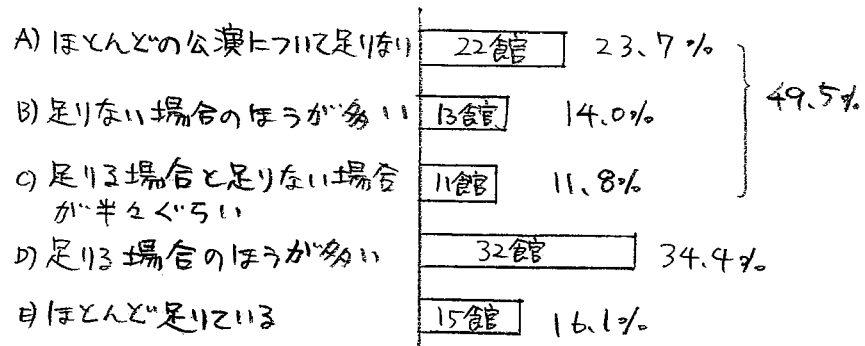 A) ほとんどの公演について足りない 22館 23.7%
B) 足りない場合のほうが多い 13館 14.0%
49.5%
C) 足りる場合と足りない場合 11館 11.8%
が半々ぐらい
D) 足りる場合のほうが多い 32館 34.4%
E) ほとんど足りている 15館 16.1%